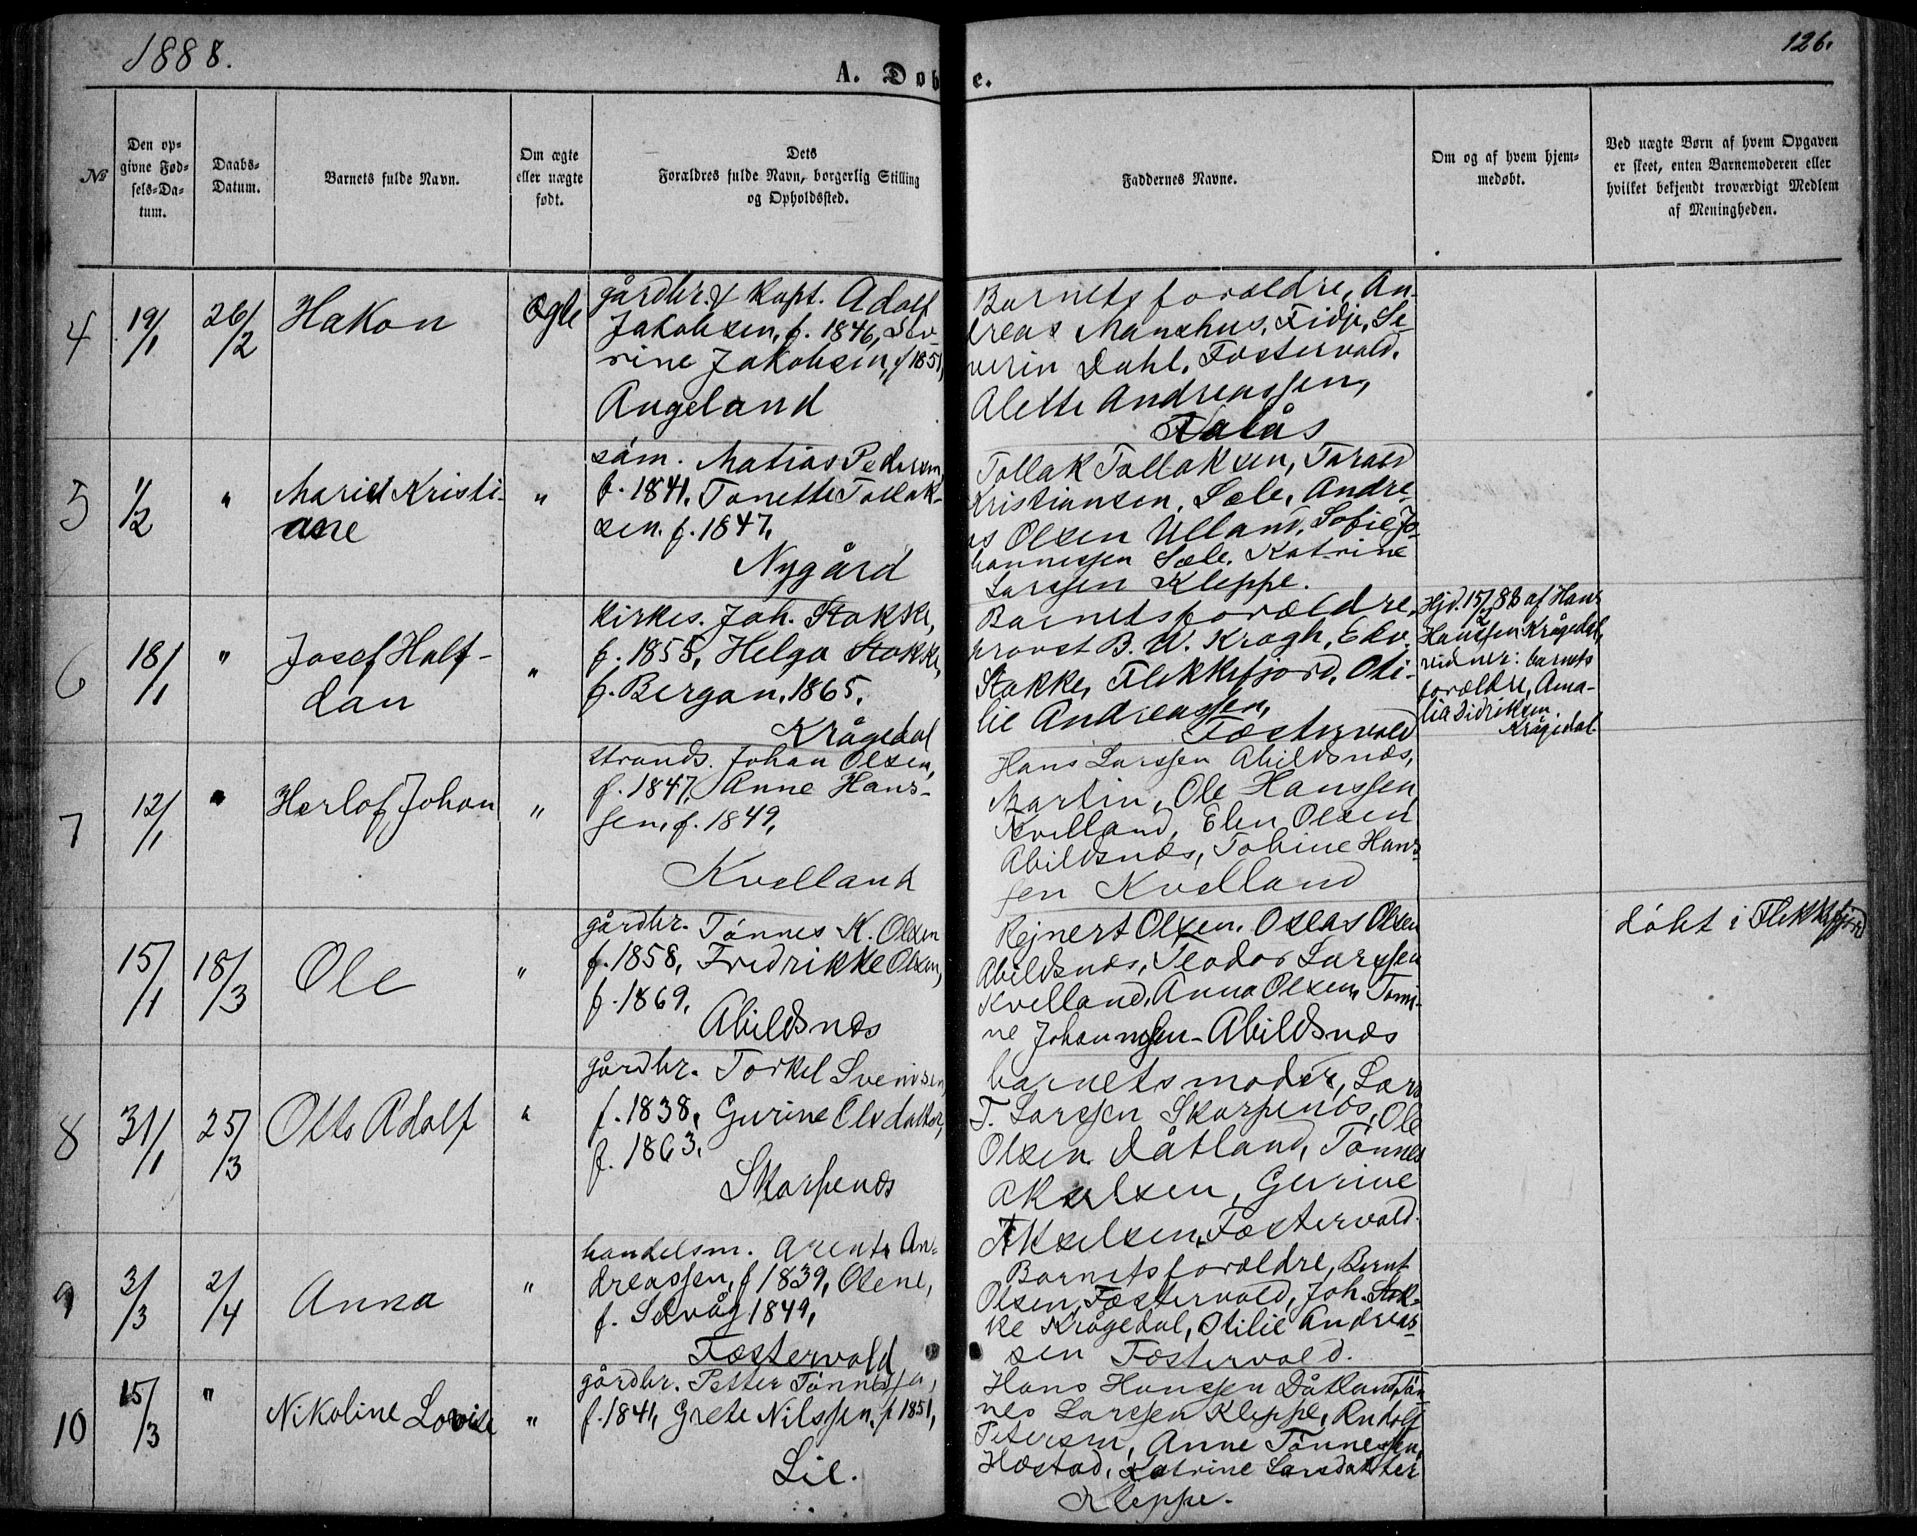 1888.
126.
A. Døbte.
№
Den op-
givne Fød-
sels-Da-
tum.
Daabs-
Datum.
Barnets fulde Navn.
Om ægte
eller uægte
født.
Dets
Forældres fulde Navn, borgerlig Stilling
og Opholdssted.
Faddernes Navne.
Om og af hvem hjem-
medøbt.
Ved uægte Børn af hvem Opgaven
er skeet, enten Barnemoderen eller
hvilket bekjendt troværdigt Medlem
af Menigheden.
4
19/1
26/2
Hakon
Ægte
gårdbr. & kapt. Adolf
Jakobsen, f. 1846, Sev-
rine Jakobsen, f 1851,
Augeland
Barnets forældre, An-
dreas Manshus, Fidje, Se-
verin Dahl, Fostervold,
Alette Andreassen,
Tolås
5
1/2
"
Marie Kristi-
ane
"
søm. Matias Pedersen,
f. 1841, Tonette Tollak-
sen. f. 1847,
Nygård
Tollak Tollaksen, Tarald
Kristiansen, Sæle, Andre-
as Olsen Ulland, Sofie Jo-
hannessen Sæle, Katrine
Larssen Kleppe.
6
18/1
"
Josef Half-
dan
"
kirkes. Joh. Stokke,
f. 1855, Helga Stokke,
f. Bergan, 1865,
Krågedal
Barnets forældre,
provst B. W. Krogh, Edv.
Stokke, Flekkefjord, Oti-
lie Andreassen,
Fostervold
Hjd. 15/2 88 af Hans
Hanssen Krågedal,
vidner: barnets
forældre, Ama-
lia Didriksen
Krågedal
7
12/1
"
Herlof Johan
"
strands. Johan Olsen,
f. 1847, Anne Hans-
sen, f. 1849,
Kvelland
Hans Larssen Abildsnæs,
Martin, Ole Hanssen
Kvelland, Elen Olsen
Abildsnæs, Tobine Hans-
sen Kvelland
8
15/1
18/3
Ole
"
gårdbr. Tønnes K. Olsen
f. 1858, Fredrikke Olsen,
f. 1869,
Abildsnæs
Rejnert Olsen, Oseas Olsen
Abildsnæs, Teodor Larssen
Kvelland, Anna Olsen, Tomi-
ne Johannsen - Abildsnæs
døbt i Flekkefjord
8
31/1
25/3
Otto Adolf
"
gårdbr. Torkel Svendsen,
f. 1838, Gurine Olsdatter,
f. 1863,
Skarpenæs
barnets moder, Lars
T. Larssen Skarpenæs, Ole
Olsen Dåtland, Tønnes
Akselsen, Gurine
Akselsen, Fostervold.
9
3/3
2/4
Anna
"
handelsm. Arent An-
dreassen, f 1839, Olene,
f. Selvåg 1849,
Fostervold
Barnets forældre, Bernt
Olsen, Fostervold, Joh. Stok-
ke Krågedal, Otilie Andreas-
sen Fostervold.
10
15/3
"
Nikoline Lovise
"
gårdbr. Petter Tønnessen,
f. 1841, Grete Nilssen, f 1851,
Lie.
Hans Hanssen Dåtland, Tøn-
nes Larssen Kleppe, Rudolf
Petersen, Anne Tønnessen,
Hæstad, Katrine Larsdatter
Kleppe.